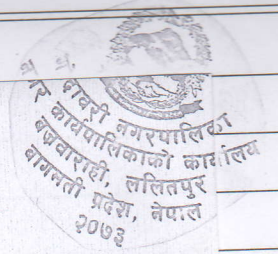 नगरपालिका
कार्यपालिकाको कार्यालय
बज्रवाराही, ललितपुर
बागमती प्रदेश, नेपाल
२०७३